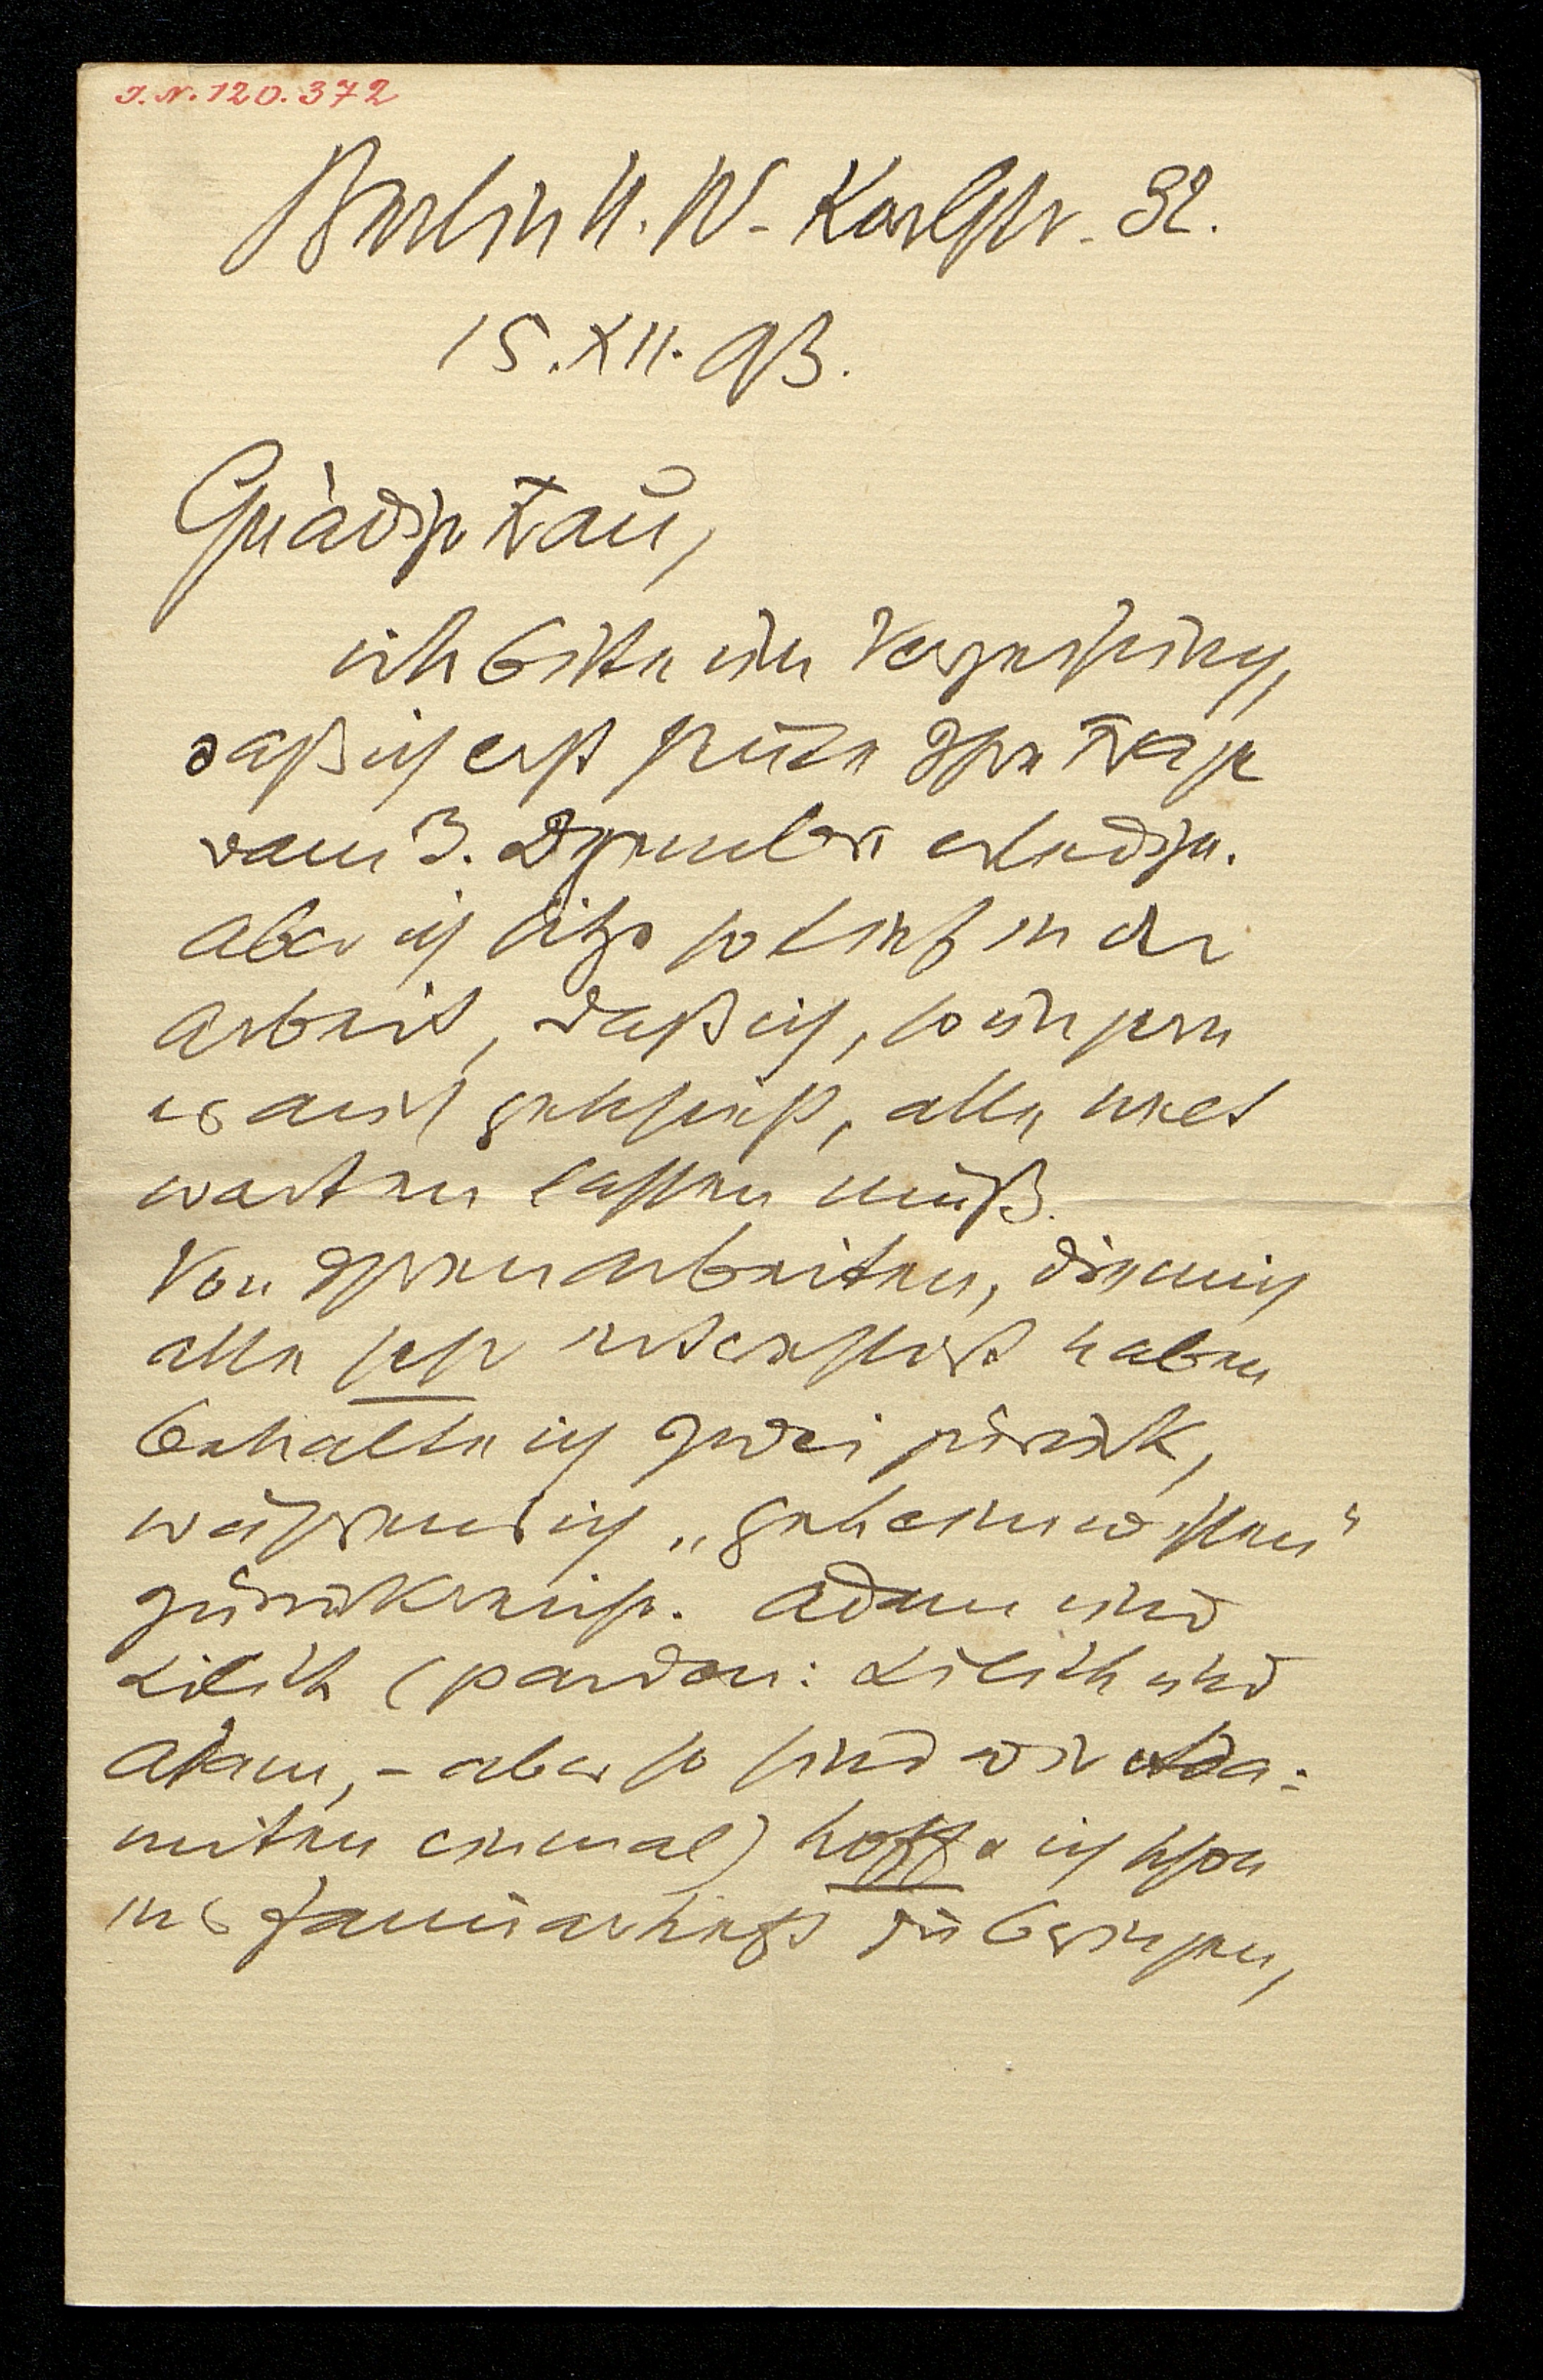 J. N. 120.372
Berlin N. W. Karlstr. 32.
15. XII. 93.
Gnädige Frau,
ich bitte um Verzeihung,
daß ich erst heute Ihre Frage
vom 3. Dezember erledige.
Aber ich sitze so tief in der
Arbeit, daß ich, so ungern
es auch geschieht, alle Welt
warten lassen muß.
Von Ihren Arbeiten, die mich
alle sehr interessirt haben
behalte ich zwei zurück,
während ich „
zurückreiche. Adam und
Lilith (pardon: Lilith und
Adam, – aber so sind wir Ada-
miten einmal) hoffe ich schon
ins Januarheft zu bringen,